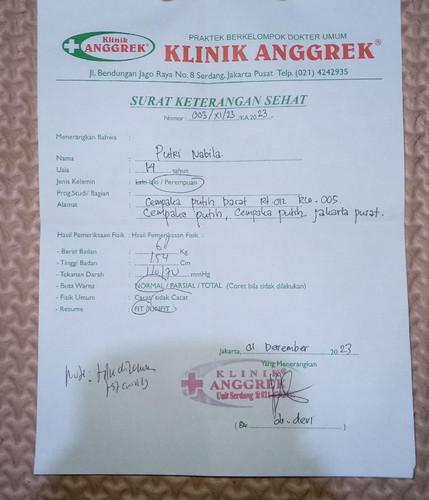 Klinik
ANGGREK®
PRAKTEK BERKELOMPOK DOKTER UMUM
KLINIK ANGGREK®
Jl. Bendungan Jago Raya No. 8 Serdang, Jakarta Pusat Telp. (021) 4242935
SURAT KETERANGAN SEHAT
Nomor : 003/XI/23 /KA.2023.
Menerangkan Bahwa :
Nama : Putri Nabila.
Usia : 19 tahun
Jenis Kelemin : Laki-laki / Perempuan
Prog.Studi/ Bagian :
Alamat : Cempaka putih barat Rt.012 Rw.005.
Cempaka putih, Cempaka putih jakarta pusat.
Hasil Pemeriksaan Fisik : Hasil Pemeriksaan Fisik :
- Berat Badan : Kg
- Tinggi Badan : 154 Cm
- Tekanan Darah : 110/70 mmHg
- Buta Warna : NORMAL / PARSIAL / TOTAL (Coret bila tidak dilakukan)
- Fisik Umum : Cacat/ tidak Cacat
- Resume : FIT /UNFIT
Jakarta, 01 Desember 2023
Yang Menerangkan
KLINIK
ANGGREK
Unit Serdang
note:
( dr. devi )